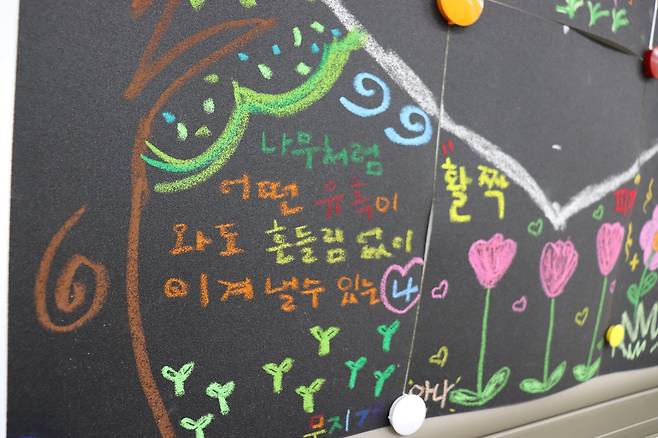 나무처럼
어떤 유혹이
와도 흔들림 없이
이겨낼수 있는 나
"활짝